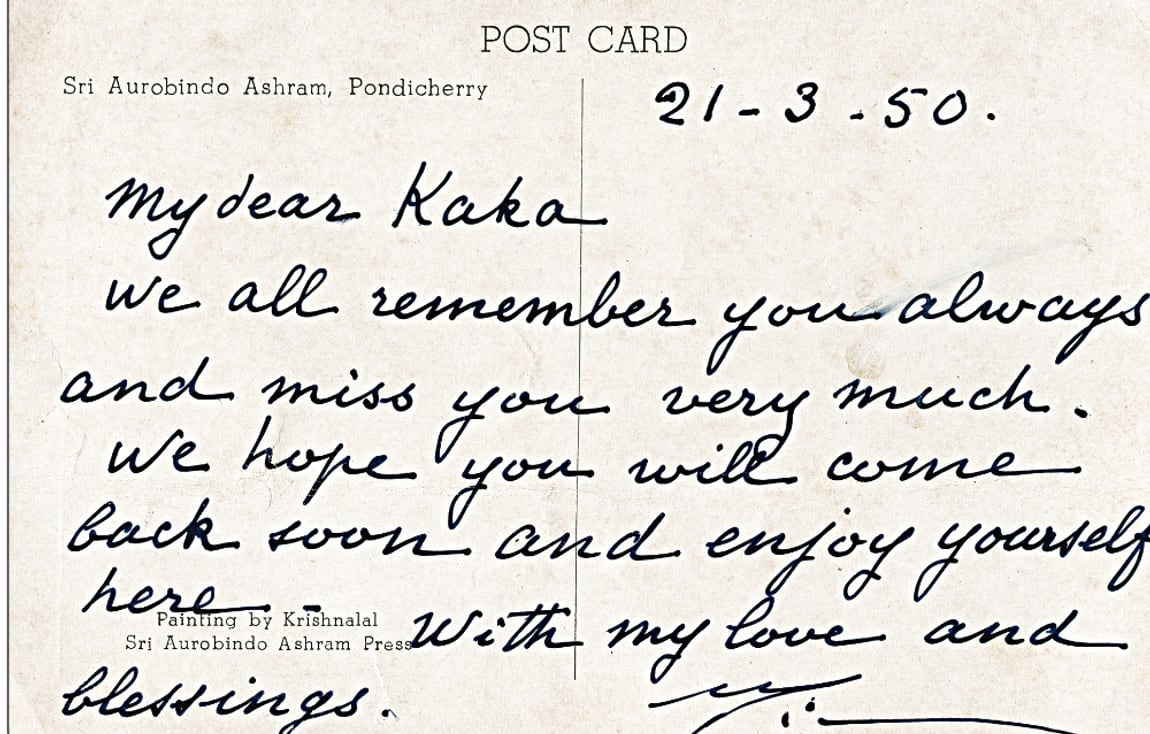 POST CARD
Sri Aurobindo Ashram, Pondicherry
21-3-50.
My dear Kaka
We all remember you always
and miss you very much.
We hope you will come
back soon and enjoy yourself
here -
Painting by Krishnalal
Sri Aurobindo Ashram Press
With my love and
blessings.